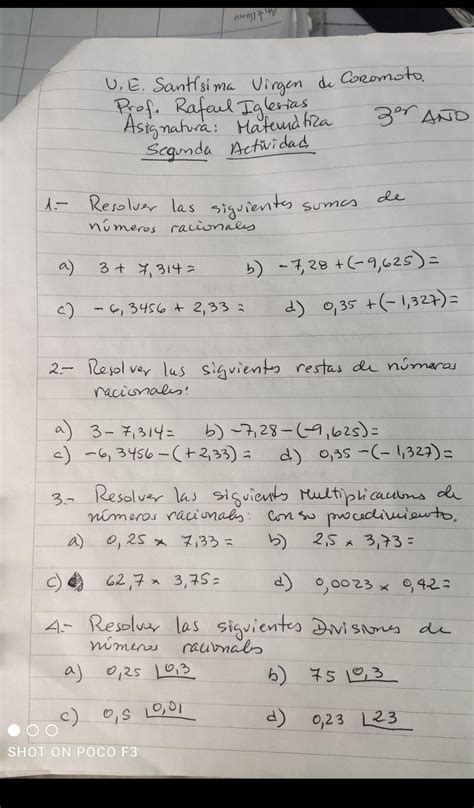 Castellano
U.E. Santísima Virgen de Coromoto.
Prof. Rafael Iglesias
Asignatura: Matemática 3er AÑO
Segunda Actividad
1.- Resolver las siguientes sumas de
números racionales
a) 3 + 7,314 = b) -7,28 + (-9,625) =
c) -6,3456 + 2,33 = d) 0,35 + (-1,327) =
2.- Resolver las siguientes restas de números
racionales:
a) 3 - 7,314 = b) -7,28 - (-9,625) =
c) -6,3456 - (+2,33) = d) 0,35 - (-1,327) =
3.- Resolver las siguientes Multiplicaciones de
números racionales: con su procedimiento.
a) 0,25 x 7,33 = b) 2,5 x 3,73 =
c) 62,7 x 3,75 = d) 0,0023 x 0,42 =
4.- Resolver las siguientes Divisiones de
números racionales
a) 0,25 |0,3 b) 75 |0,3
c) 0,5 |0,01 d) 0,23 |23
SHOT ON POCO F3